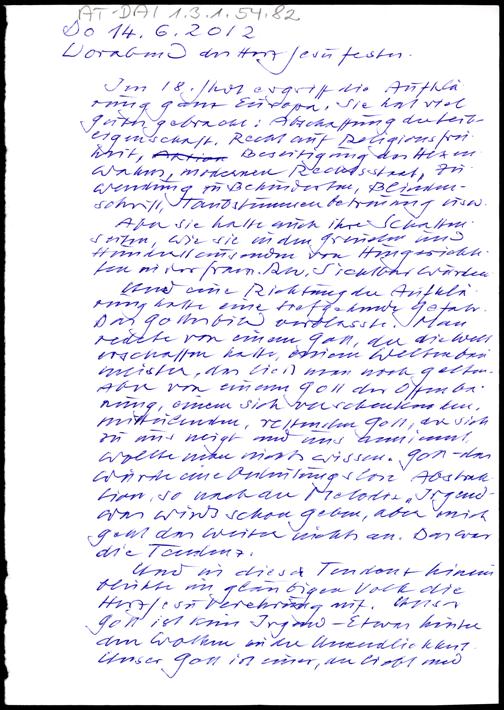 AT-DAI 1.3.1.54.82
Do 14.6.2012
Vorabend des Herz Jesu festes.
Im 18. Jhdt ergriff die Aufklä
rung ganz Europa. Sie hat viel
gutes gebracht: Abschaffung der Leib-
eigenschaft. Recht auf Religionsfrei
heit, Beseitigung des Hexen
wahns, modernen Rechtsstaat, Zu
wendung zu Behinderten, Blinden-
schrift, Taubstummenbetreuung usw.
Aber sie hatte auch ihre Schatten
seiten, wie sie in den grausen und
Hunderttausenden von Hingerichte
ten in der franz. Rev. Sichtbar wurden
Und eine Richtung der Aufklä
rung hatte eine tiefgehende Gefahr.
Das Gottesbild verblasste. Man
redete von einem Gott, der die Welt
erschaffen hatte, einem Weltenbau
meister, das ließ man noch gelten.
Aber von einem Gott der Offenba
rung, einem sich verschenkenden,
mitleidenden, rettenden Gott, der sich
zu uns neigt und uns annimmt,
wollte man nichts wissen. Gott - das
wurde eine bedeutungslose Abstrak
tion, so nach der Melodie "Irgend-
was wird's schon geben, aber mich
geht das weiter nichts an. Das war
die Tendenz.
Und in diese Tendenz hinein
blühte im gläubigen Volk die
Herz Jesu Verehrung auf. Unser
Gott ist kein Irgend-Etwas hinter
den Wolken in der Unendlichkeit.
Unser Gott ist einer, der liebt und